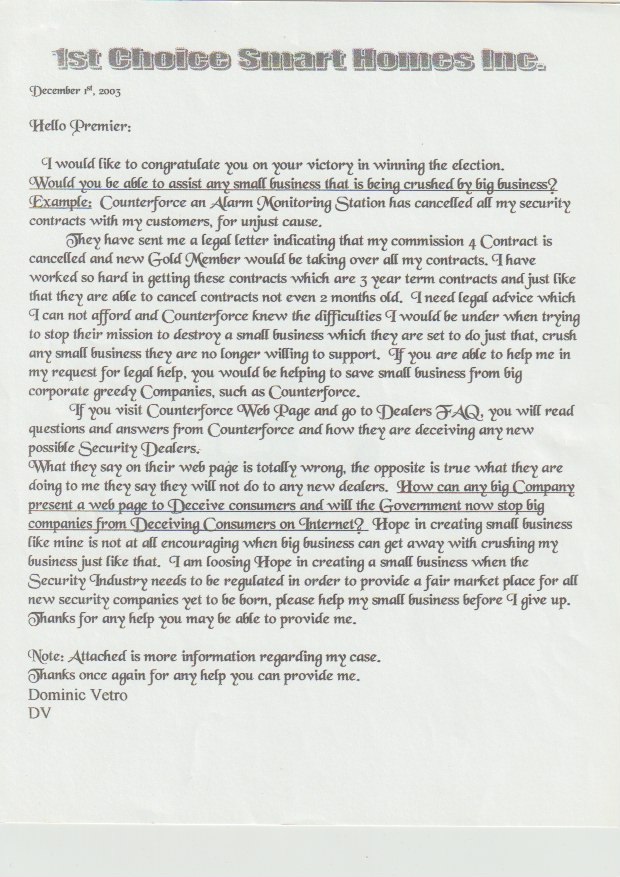 1st Choice Smart Homes Inc.
December 1st, 2003
Hello Premier:
I would like to congratulate you on your victory in winning the election.
Would you be able to assist any small business that is being crushed by big business?
Example: Counterforce an Alarm Monitoring Station has cancelled all my security
contracts with my customers, for unjust cause.
They have sent me a legal letter indicating that my commission 4 Contract is
cancelled and new Gold Member would be taking over all my contracts. I have
worked so hard in getting these contracts which are 3 year term contracts and just like
that they are able to cancel contracts not even 2 months old. I need legal advice which
I can not afford and Counterforce knew the difficulties I would be under when trying
to stop their mission to destroy a small business which they are set to do just that, crush
any small business they are no longer willing to support. If you are able to help me in
my request for legal help, you would be helping to save small business from big
corporate greedy Companies, such as Counterforce.
If you visit Counterforce Web Page and go to Dealers FAQ, you will read
questions and answers from Counterforce and how they are deceiving any new
possible Security Dealers.
What they say on their web page is totally wrong, the opposite is true what they are
doing to me they say they will not do to any new dealers. How can any big Company
present a web page to Deceive consumers and will the Government now stop big
companies from Deceiving Consumers on Internet? Hope in creating small business
like mine is not at all encouraging when big business can get away with crushing my
business just like that. I am loosing Hope in creating a small business when the
Security Industry needs to be regulated in order to provide a fair market place for all
new security companies yet to be born, please help my small business before I give up.
Thanks for any help you may be able to provide me.
Note: Attached is more information regarding my case.
Thanks once again for any help you can provide me.
Dominic Vetro
DV